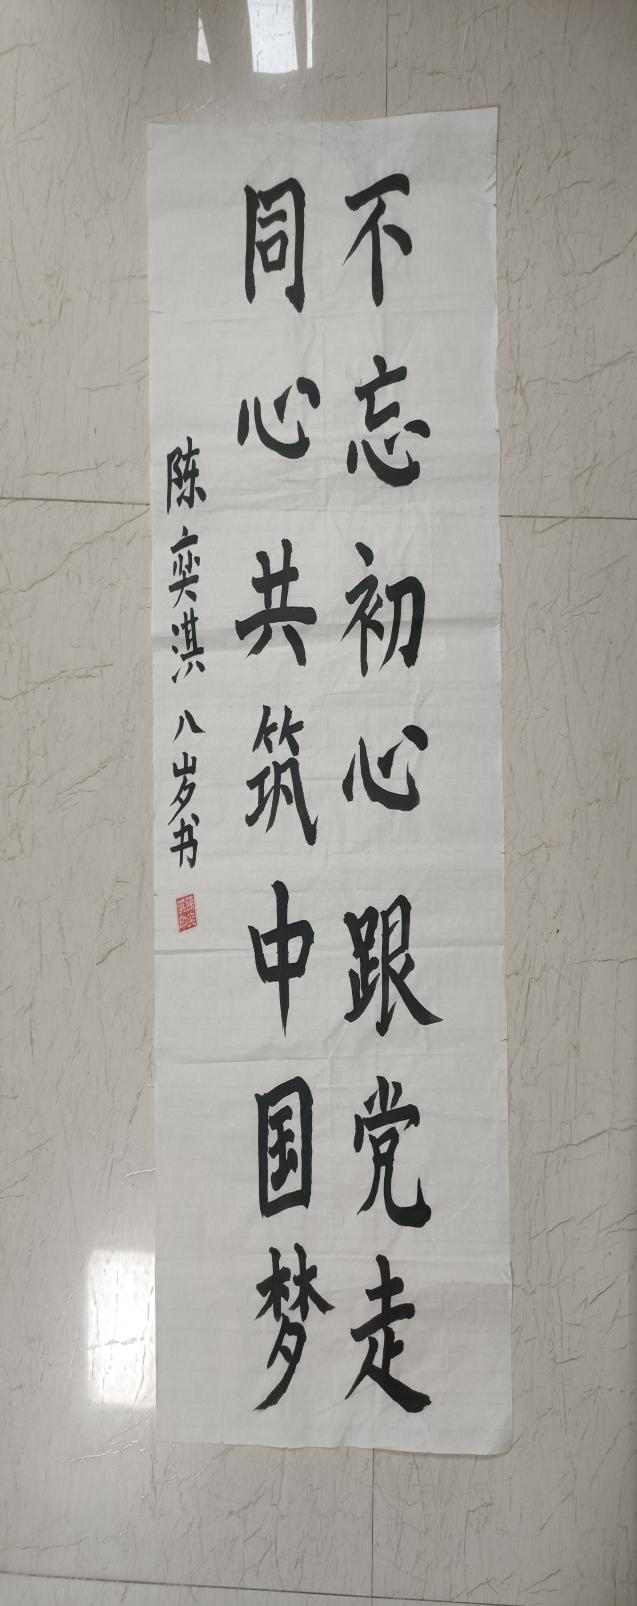 不忘初心跟党走
同心共筑中国梦
陈奕淇八岁书
陈奕淇印